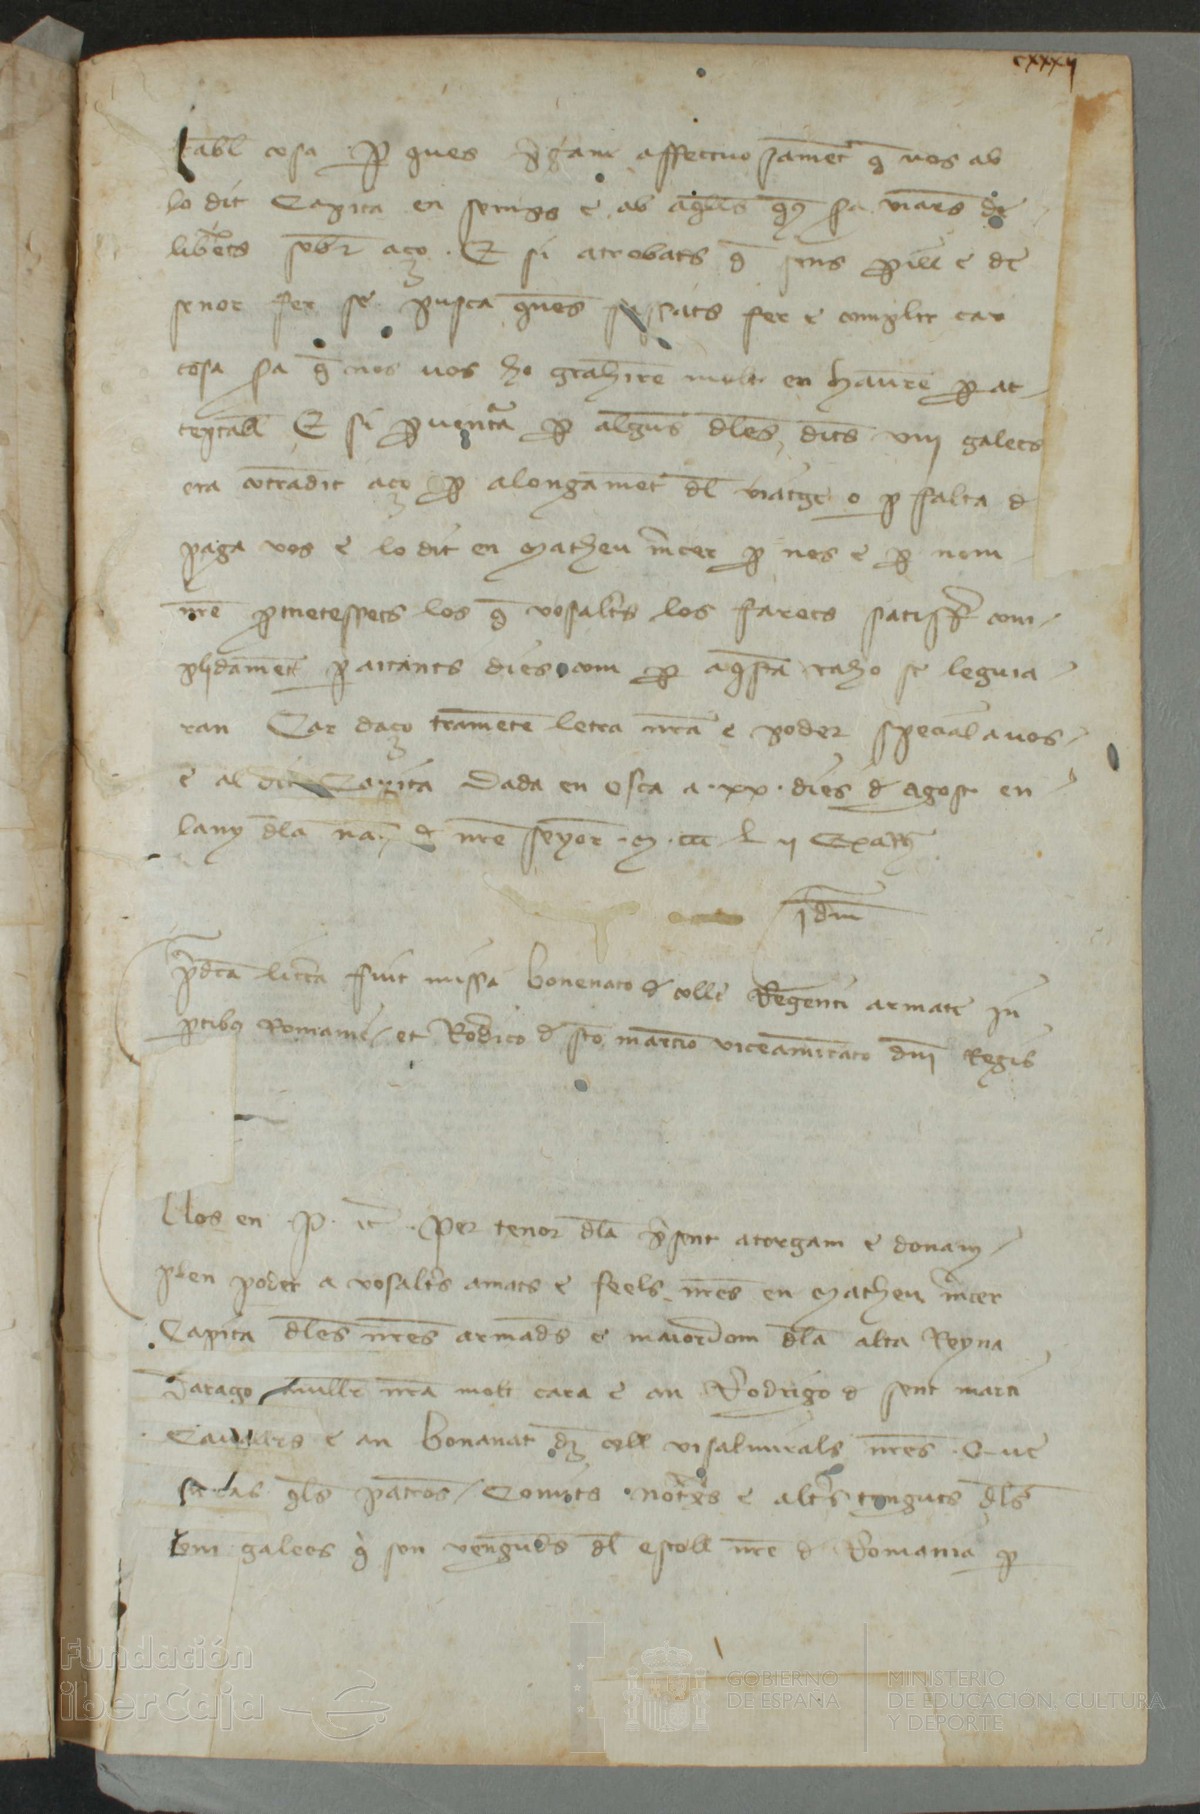 cxxxij
tabl cosa p ques pgam affectuosament q vos ab
lo dit Capita en semps e ab aquls q sa viares de
libets sobr aço. E si atrobats q sens pill e de
senor fer se pusca ques fer e complir car
cosa sa q nos vos ho grahirem molt en haurem p ac
ceptabl E si pventa p alguns dles dits viij galees
era contradit aço p alongamet dl viatge o p falta d
paga vos e lo dit en Matheu mcer p nos e p nom
nre pmetessets los q vosaltrs los farets satisfer com
plidament p aitants dies com p aqsta raho se leguia
ran Car daço trametem letra nra e poder special a vos
e al dit Capita Dada en Osca a .xx. dies d Agost en
lany dla na. d nre senyor .M.ccc L ij Exa
Idm
pdca littera fuit missa bonenato d colle Regenti armate in
ptibus Romanie / et Rodico d sto martino viceamirato dni Regis
Nos en .P. etc. Per tenor dla psent atorgam e donam
plen poder a vosaltrs amats e feels nres en Matheu mcer
Capita dles nres armads e maiordom dla alta Reyna
Darago muller nra molt cara e an Rodrigo d sent marti
Cavallers e an bonanat dez coll visalmirals nres. Que
ab qls patrons / Comits notxs e altrs tenguts dls
viij galees q son venguds dl estoll nre d Romania p
Fundación
iberCaja
GOBIERNO
DE ESPAÑA
MINISTERIO
DE EDUCACIÓN, CULTURA
Y DEPORTE